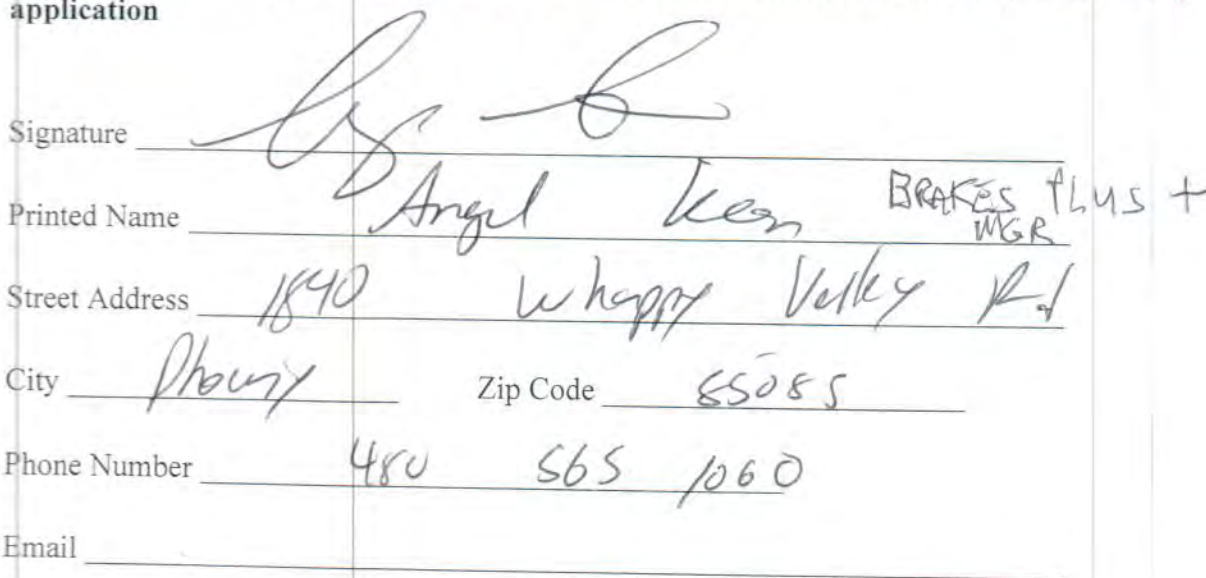 application
Signature
Printed Name Angel Kean BRAKES PLUS +
MGR
Street Address 1840 W happy Valley Rd
City Phoenix Zip Code 85085
Phone Number 480 565 1060
Email